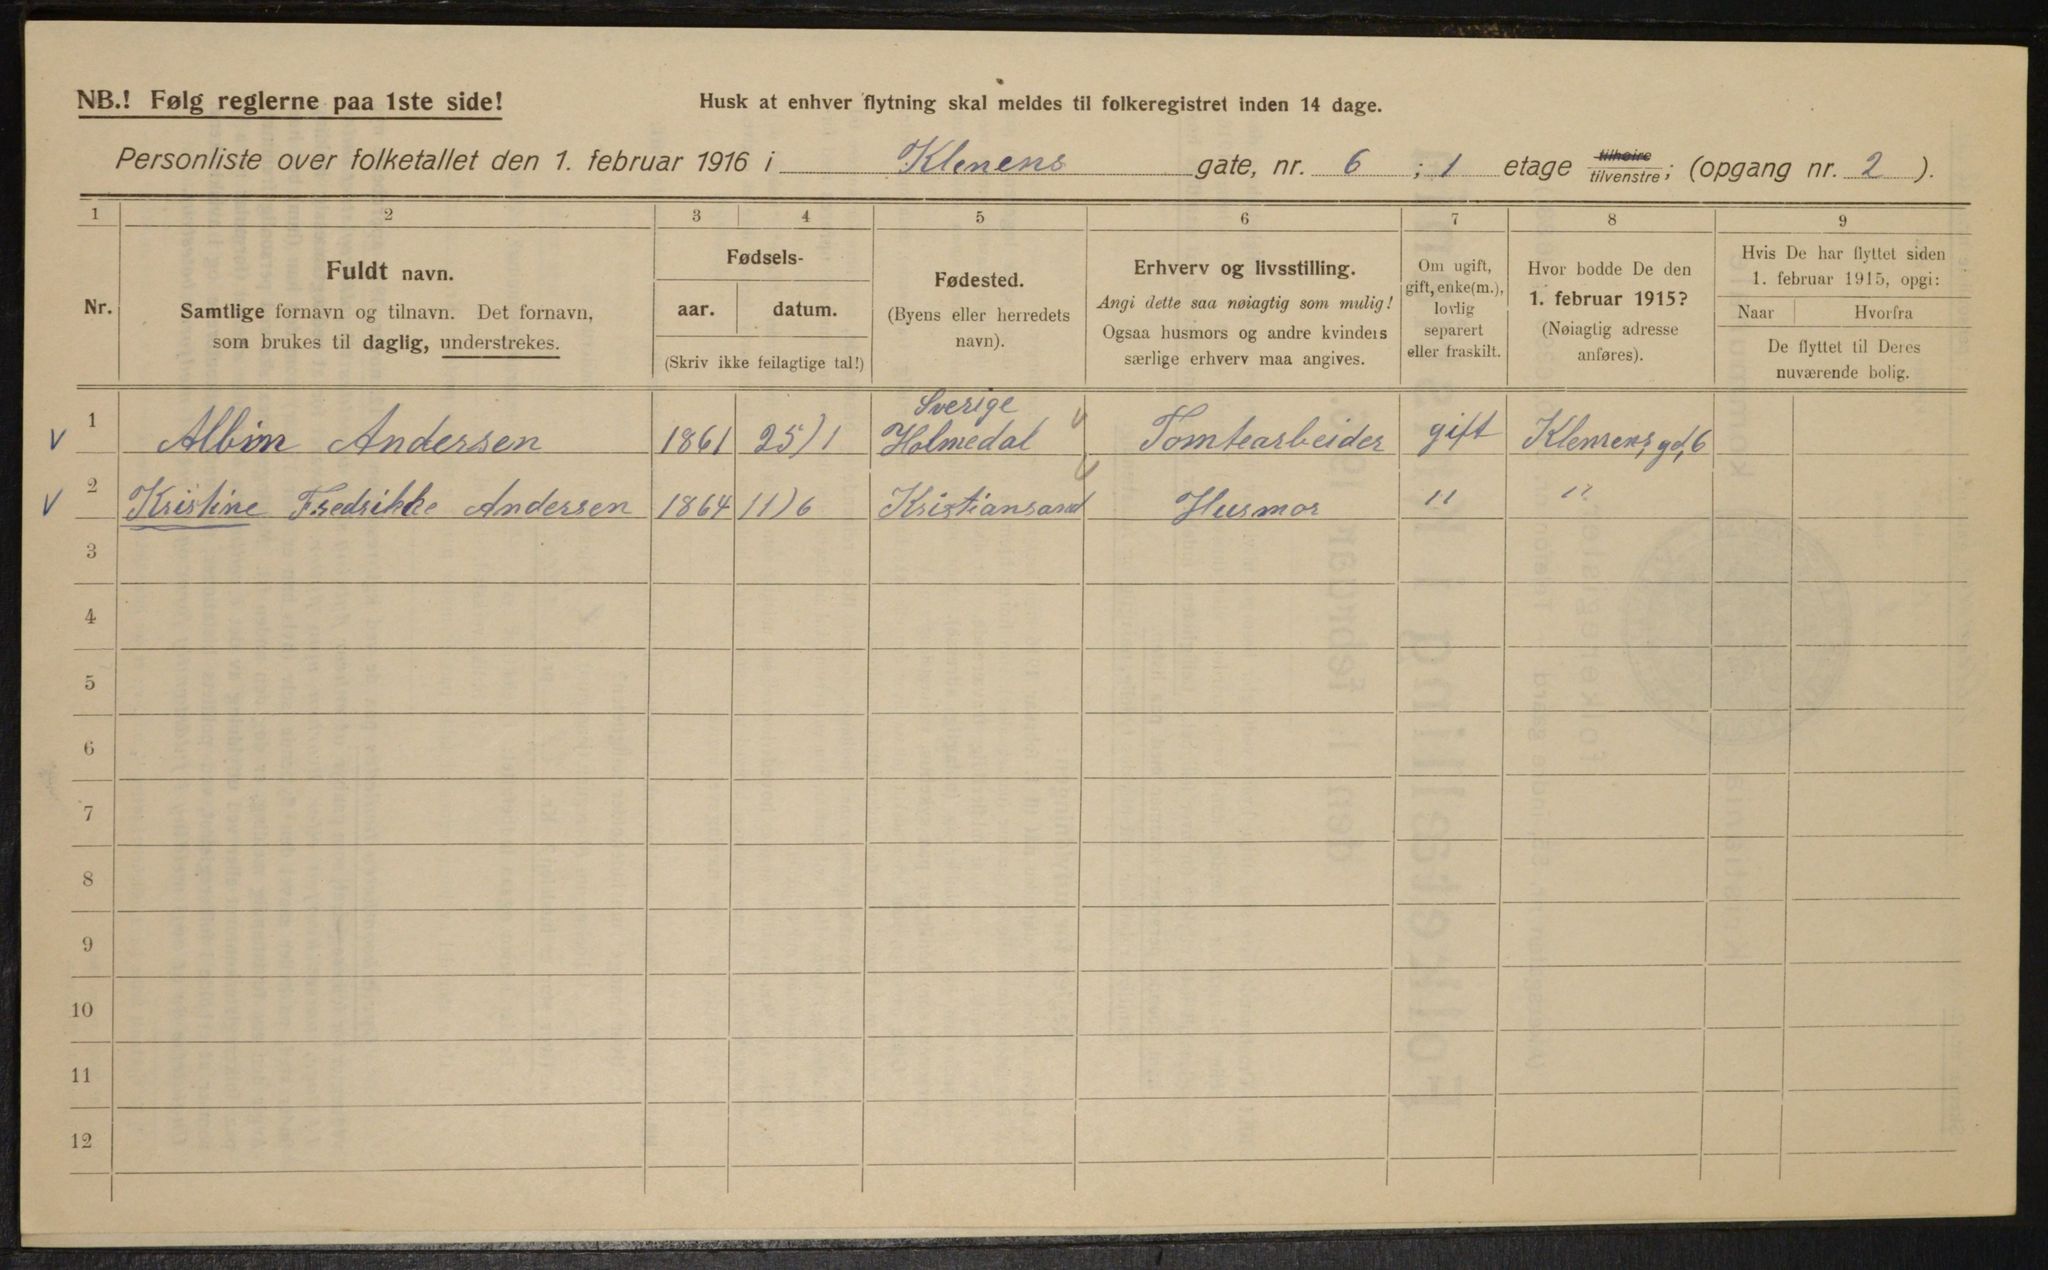 NB.! Følg reglerne paa 1ste side!
Husk at enhver flytning skal meldes til folkeregistret inden 14 dage.
Personliste over folketallet den 1. februar 1916 i Klenens gate, nr. 6 ; 1 etage tilhøire tilvenstre; (opgang nr. 2 ).
1 2 3 4 5 6 7 8 9
Nr.
Fuldt navn.
Samtlige fornavn og tilnavn. Det fornavn,
som brukes til daglig, understrekes.
Fødsels-
aar. datum.
(Skriv ikke feilagtige tal!)
Fødested.
(Byens eller herredets
navn).
Erhverv og livsstilling.
Angi dette saa nøiagtig som mulig!
Ogsaa husmors og andre kvinders
særlige erhverv maa angives.
Om ugift,
gift, enke(m.),
lovlig
separert
eller fraskilt.
Hvor bodde De den
1. februar 1915?
(Nøiagtig adresse
anføres).
Hvis De har flyttet siden
1. februar 1915, opgi:
Naar Hvorfra
De flyttet til Deres
nuværende bolig.
Sverige
V 1 Albin Andersen 1861 25)1 Holmedal Tomtearbeider gift Klemens gd, 6
V 2 Kristine Fredrikke Andersen 1864 11)6 Kristiansand Husmor " "
3
4
5
6
7
8
9
10
11
12